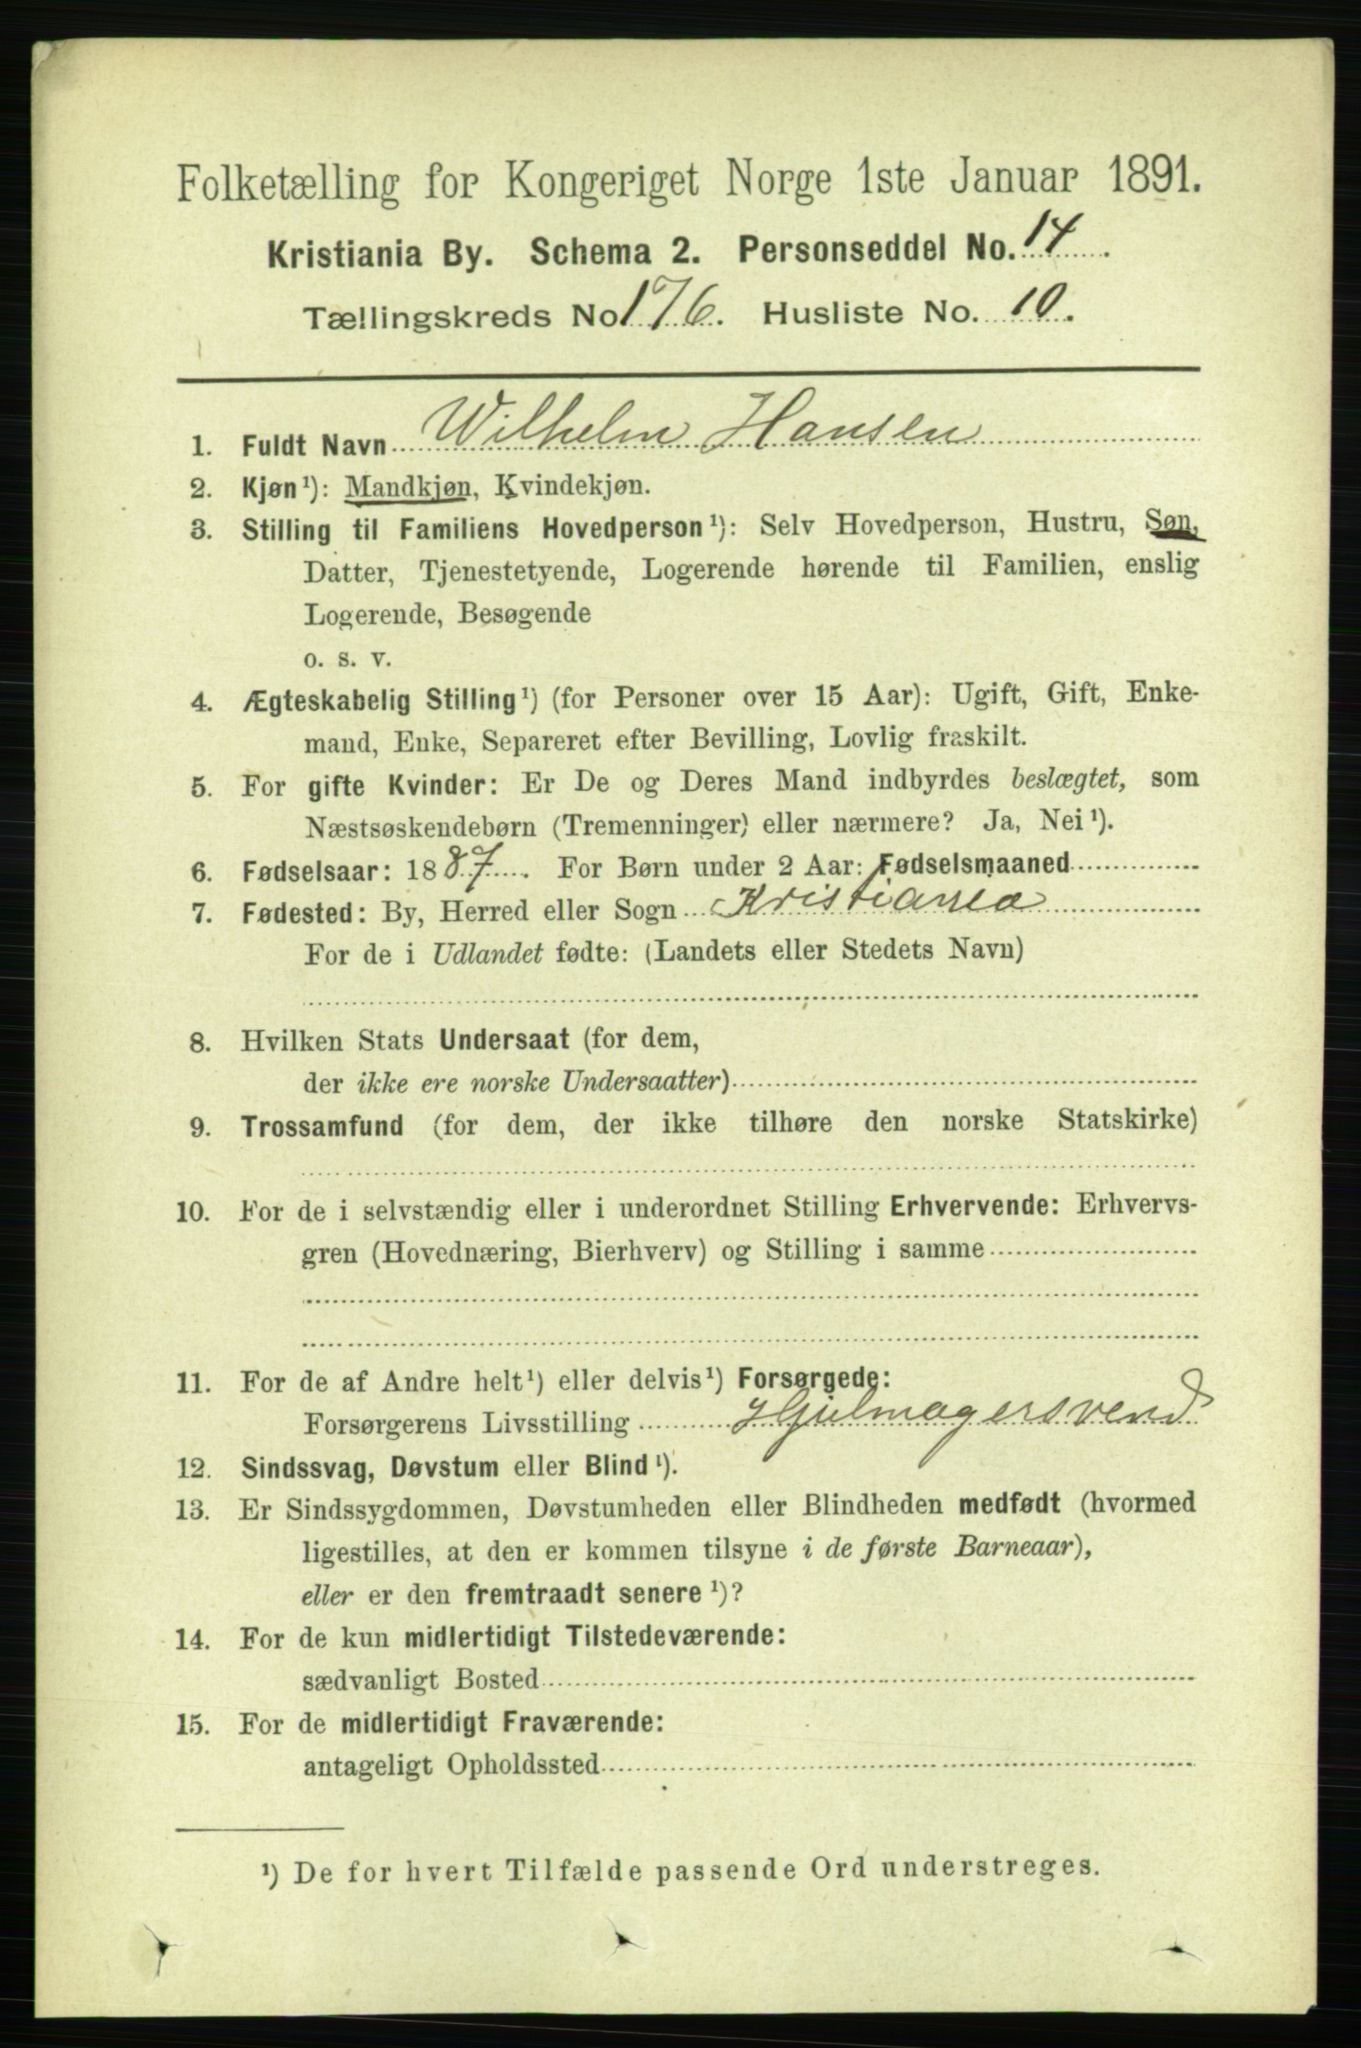 Folketælling for Kongeriget Norge 1ste Januar 1891.
Kristiania By. Schema 2. Personseddel No. 14
Tællingskreds No 176. Husliste No. 10.
1. Fuldt Navn Wilhelm Hansen
2. Kjøn¹): Mandkjøn, Kvindekjøn.
3. Stilling til Familiens Hovedperson¹): Selv Hovedperson, Hustru, Søn,
Datter, Tjenestetyende, Logerende hørende til Familien, enslig
Logerende, Besøgende
o. s. v.
4. Ægteskabelig Stilling¹) (for Personer over 15 Aar): Ugift, Gift, Enke-
mand, Enke, Separeret efter Bevilling, Lovlig fraskilt.
5. For gifte Kvinder: Er De og Deres Mand indbyrdes beslægtet, som
Næstsøskendebørn (Tremenninger) eller nærmere? Ja, Nei¹).
6. Fødselsaar: 1887. For Børn under 2 Aar: Fødselsmaaned
7. Fødested: By, Herred eller Sogn Kristiania
For de i Udlandet fødte: (Landets eller Stedets Navn)
8. Hvilken Stats Undersaat (for dem,
der ikke ere norske Undersaatter)
9. Trossamfund (for dem, der ikke tilhøre den norske Statskirke)
10. For de i selvstændig eller i underordnet Stilling Erhvervende: Erhvervs-
gren (Hovednæring, Bierhverv) og Stilling i samme
11. For de af Andre helt¹) eller delvis¹) Forsørgede:
Forsørgerens Livsstilling Hjulmagersvend
12. Sindssvag, Døvstum eller Blind¹).
13. Er Sindssygdommen, Døvstumheden eller Blindheden medfødt (hvormed
ligestilles, at den er kommen tilsyne i de første Barneaar),
eller er den fremtraadt senere¹)?
14. For de kun midlertidigt Tilstedeværende:
sædvanligt Bosted
15. For de midlertidigt Fraværende:
antageligt Opholdssted
¹) De for hvert Tilfælde passende Ord understreges.